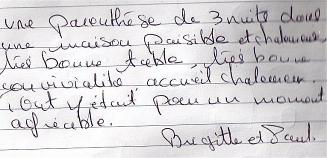 une parenthèse de 3 nuits dans
une maison paisible et chaleureuse
très bonne table, très bonne
convivialité accueil chaleureux.
Tout y était pour un moment
agréable.
Brigitte et Paul.